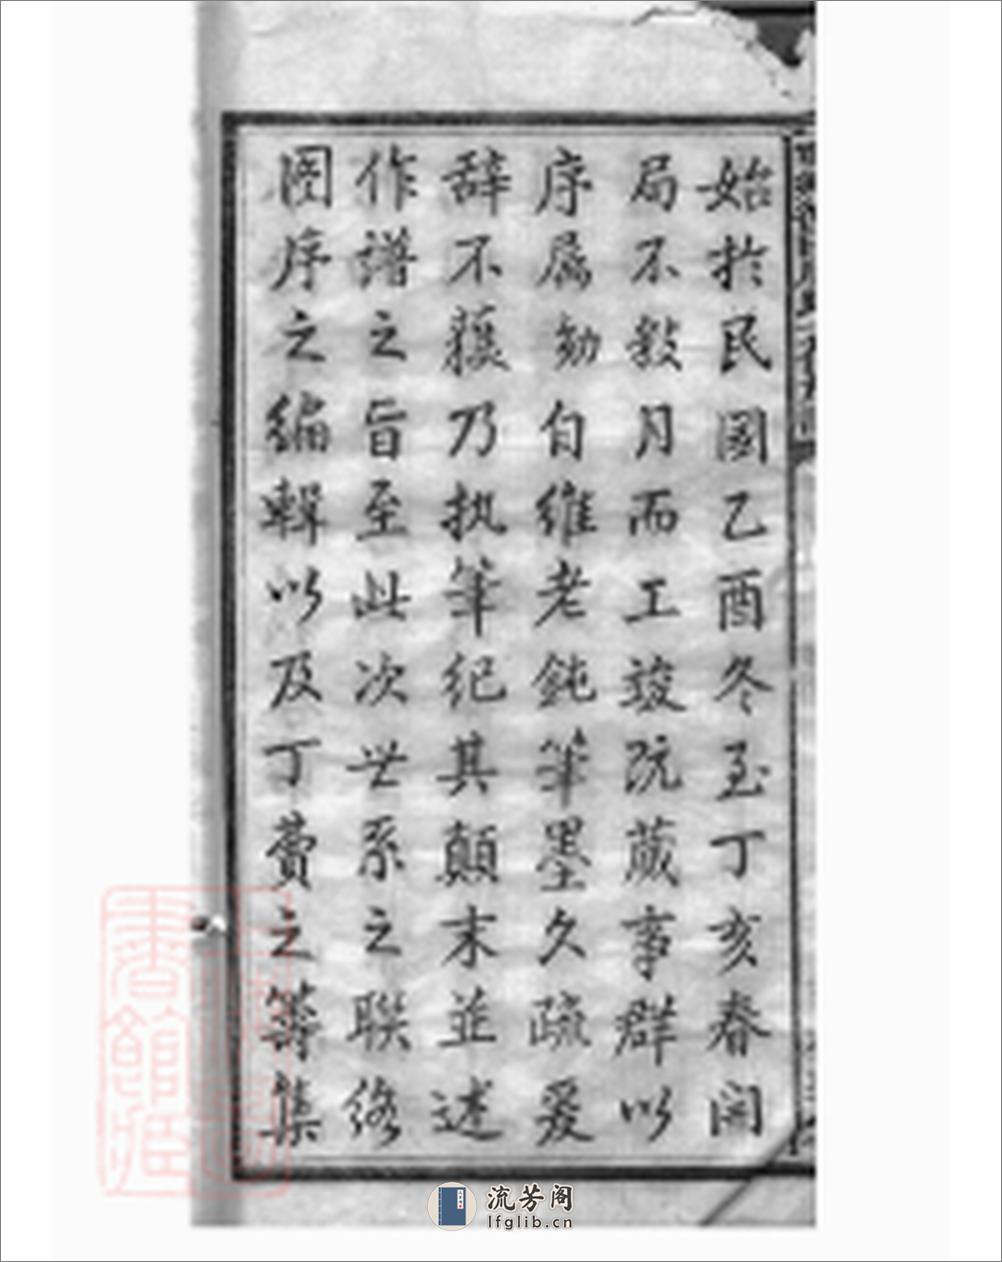 始於民國乙酉冬至丁亥春開
局不數月而工竣既蕆事群以
序屬勉自維老鈍筆墨久疏爰
辭不獲乃执筆紀其顛末並述
作譜之旨至此次世系之聯絡
圖序之編輯以及丁費之籌集
流芳阁
lfglib.cn